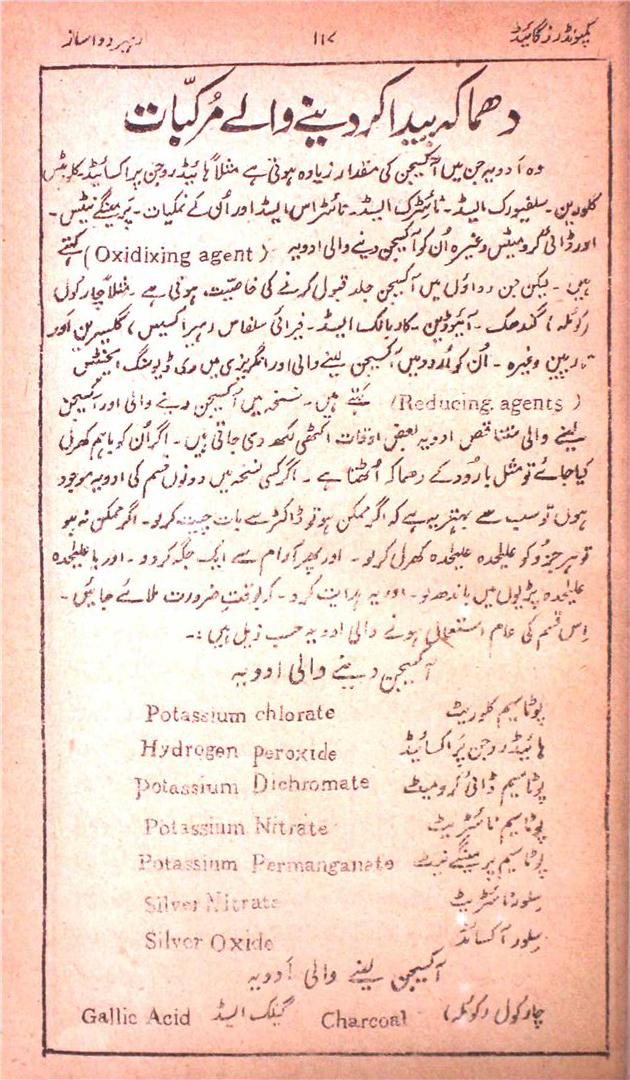 کمپونڈرز گائیڈ ۱۱۷ رہبر دواساز
دھماکہ پیدا کر دینے والے مرکبات
وہ ادویہ جن میں آکسیجن کی مقدار زیادہ ہوتی ہے مثلاً ہائیڈروجن پر اکسائیڈ۔ کلوریٹس
کلورین۔ سلفیورک ایسڈ۔ نائیٹرک ایسڈ۔ نائٹراس ایسڈ اور اُن کے نمکیات۔ پرمینگے نیٹس۔
اور ڈائی کرومیٹس وغیرہ اُن کو آکسیجن دینے والی ادویہ (Oxidixing agent) کہتے
ہیں۔ لیکن جن دواؤں میں آکسیجن جلد قبول کرنے کی خاصیت ہوتی ہے۔ مثلاً چارکول
(کوئلہ) گندھک۔ آئیوڈین۔ کاربالک ایسڈ۔ فیرائی سلفاس (ہیراکسیس) گلیسرین اور
تارپین وغیرہ۔ اُن کو اُردو میں آکسیجن لینے والی اور انگریزی میں ری ڈیوسنگ ایجنٹس
(Reducing. agents) کہتے ہیں۔ نسخہ میں آکسیجن دینے والی اور آکسیجن
لینے والی متناقص ادویہ بعض اوقات اکٹھی لکھ دی جاتی ہیں۔ اگر اُن کو باہم کھرل
کیا جائے تو مثل بارُود کے دھماکہ اُٹھتا ہے۔ اگر کسی نسخہ میں دونوں قسم کی ادویہ موجود
ہوں تو سب سے بہتر یہ ہے کہ اگر ممکن ہو تو ڈاکٹر سے بات چیت کر لو۔ اگر ممکن نہ ہو
تو ہر جزُو کو علیٰحدہ علیٰحدہ کھرل کر لو۔ اور پھر آرام سے ایک جگہ کر دو۔ اور یا علیٰحدہ
علیٰحدہ پڑیوں میں باندھ لو۔ اور یہ ہدایت کر دو۔ کہ بوقتِ ضرورت ملائے جائیں۔
اِس قسم کی عام استعمال ہونے والی ادویہ حسب ذیل ہیں :۔
آکسیجن دینے والی ادویہ
پوٹاسیم کلوریٹ Potassium chlorate
ہائیڈروجن پر اکسائیڈ Hydrogen peroxide
پوٹاسیم ڈائی کرومیٹ Potassium Dichromate
پوٹاسیم نائٹریٹ Potassium Nitrate
پوٹاسیم پرمینگے نیٹ Potassium Permanganate
سِلور نائٹریٹ Silver Nitrate
سِلور آکسائڈ Silver Oxide
آکسیجن لینے والی ادویہ
چارکول (کوئلہ) Charcoal گیلک ایسڈ Gallic Acid